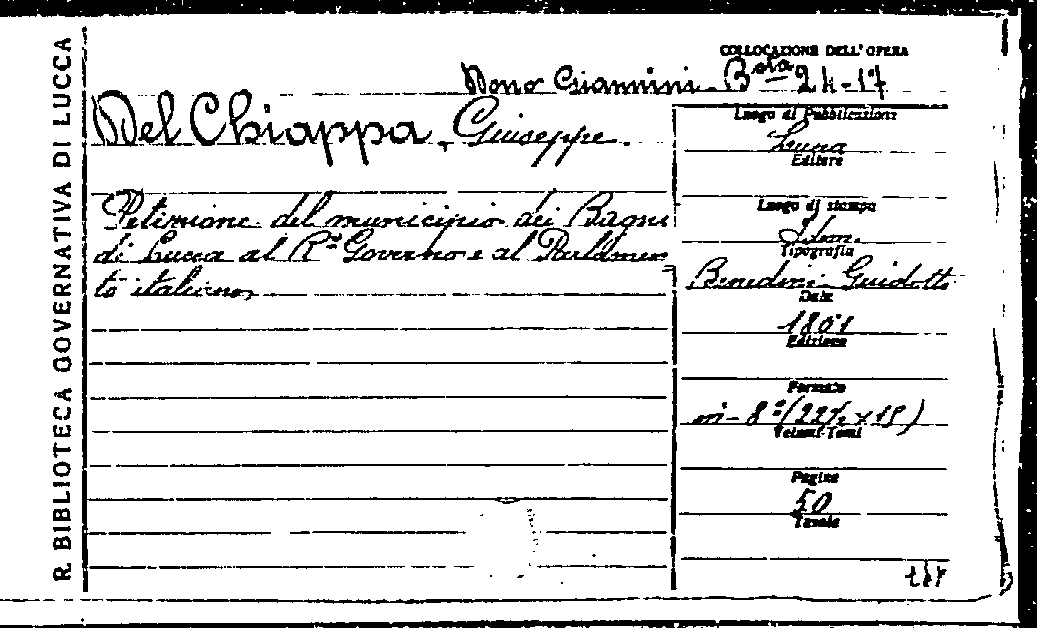 R. BIBLIOTECA GOVERNATIVA DI LUCCA
COLLOCAZIONE DELL'OPERA
Dono Giannini. Bsta 24-17
Del Chiappa, Giuseppe.
Petizione del municipio dei Bagni
di Lucca al R° Governo e al Parlamen=
to italiano
Luogo di Pubblicazione
Lucca
Editore
Luogo di stampa
Idem.
Tipografia
Benedini Guidotti
Data
1861
Edizione
Formato
in-8°
Volumi-Tomi
Pagine
50
Tavole